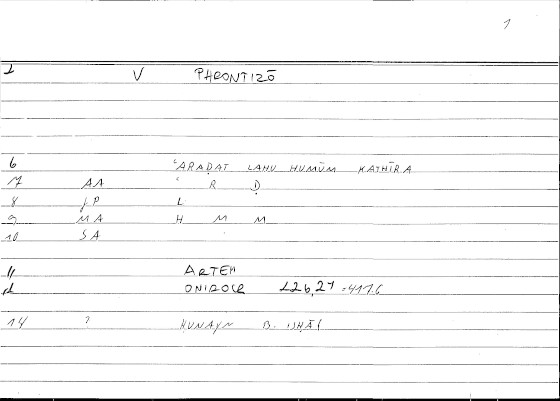 1
1 V PHRONTIZŌ
6 ʿARAḌAT LAHU HUMŪM KATHĪRA
7 AA ʿ R Ḍ
8 PP L
9 MA H M M
10 SA
11 ARTEM
ONIROCR 126,27 = 411.6
14 ? ḤUNAYN B. ISḤĀQ